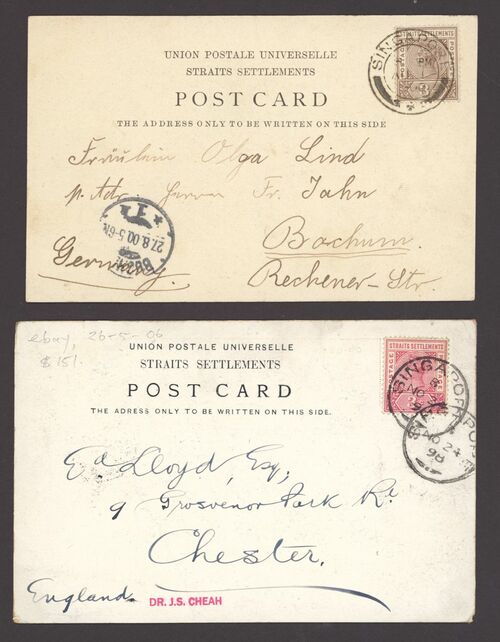 UNION POSTALE UNIVERSELLE
STRAITS SETTLEMENTS
POST CARD
THE ADDRESS ONLY TO BE WRITTEN ON THIS SIDE
SINGAPORE
PM
Fräulein Olga Lind
p. Adr. Herrn Fr. Jahn
Bochum.
Germany.
Rechener-Str.
27.8.00.5-6N.
ebay, 26-5-06
$15/.
UNION POSTALE UNIVERSELLE
STRAITS SETTLEMENTS
POST CARD
THE ADRESS ONLY TO BE WRITTEN ON THIS SIDE.
STRAITS SETTLEMENTS
POSTAGE
SINGAPORE
NO 24
98
Ed Lloyd Esq;
9 Grosvenor Park Rd
Chester.
England.
DR. J.S. CHEAH